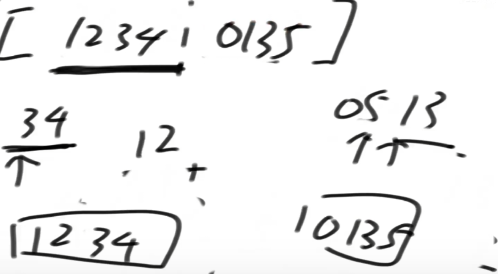 [ 1234 i 0135 ]
34 12 0513
11234 10135